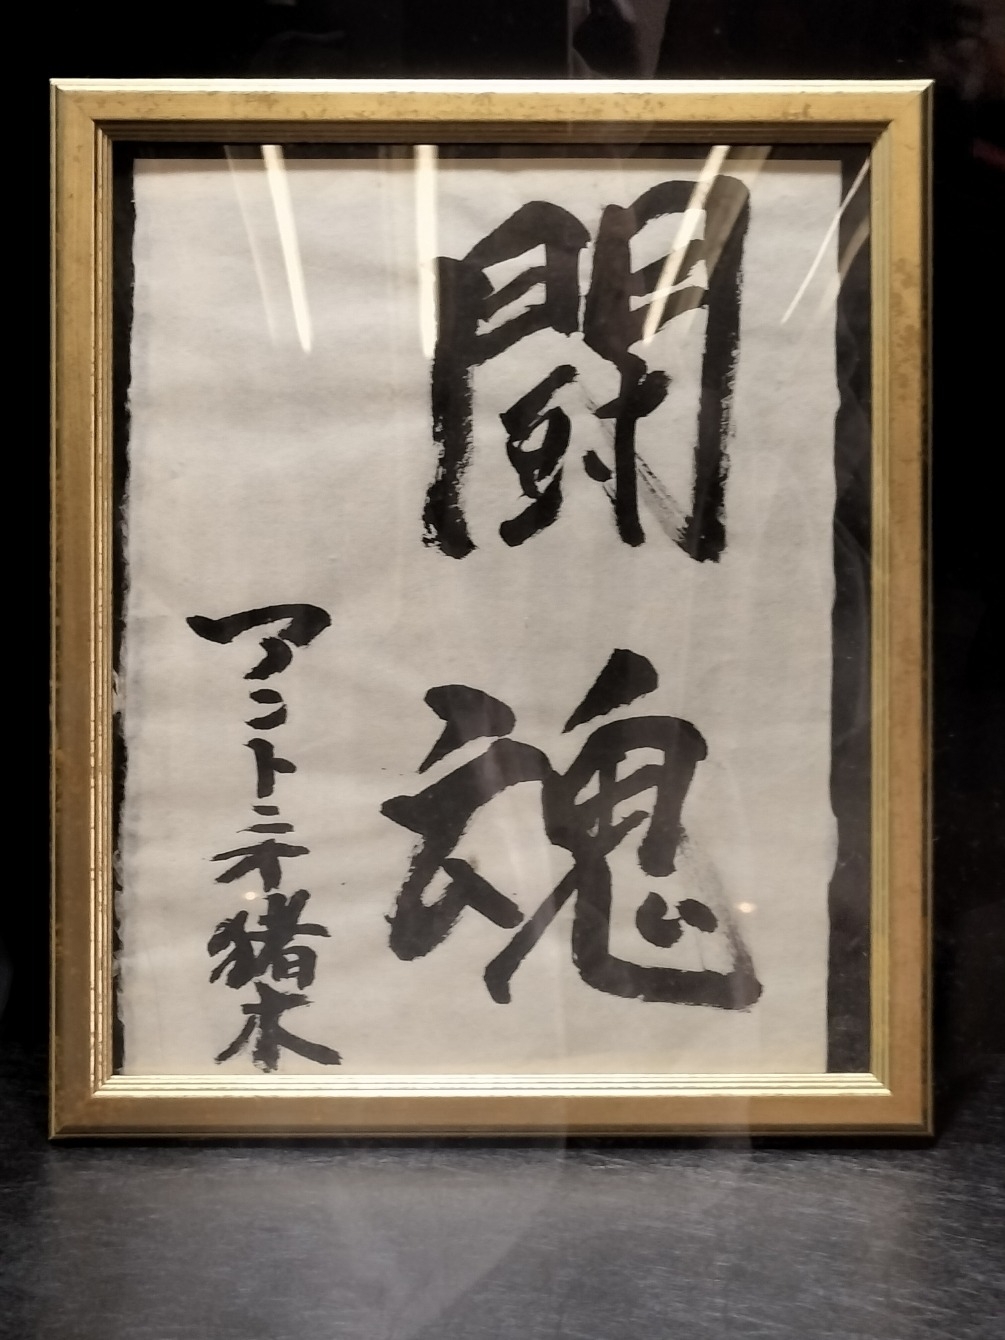 闘魂
アントニオ猪木